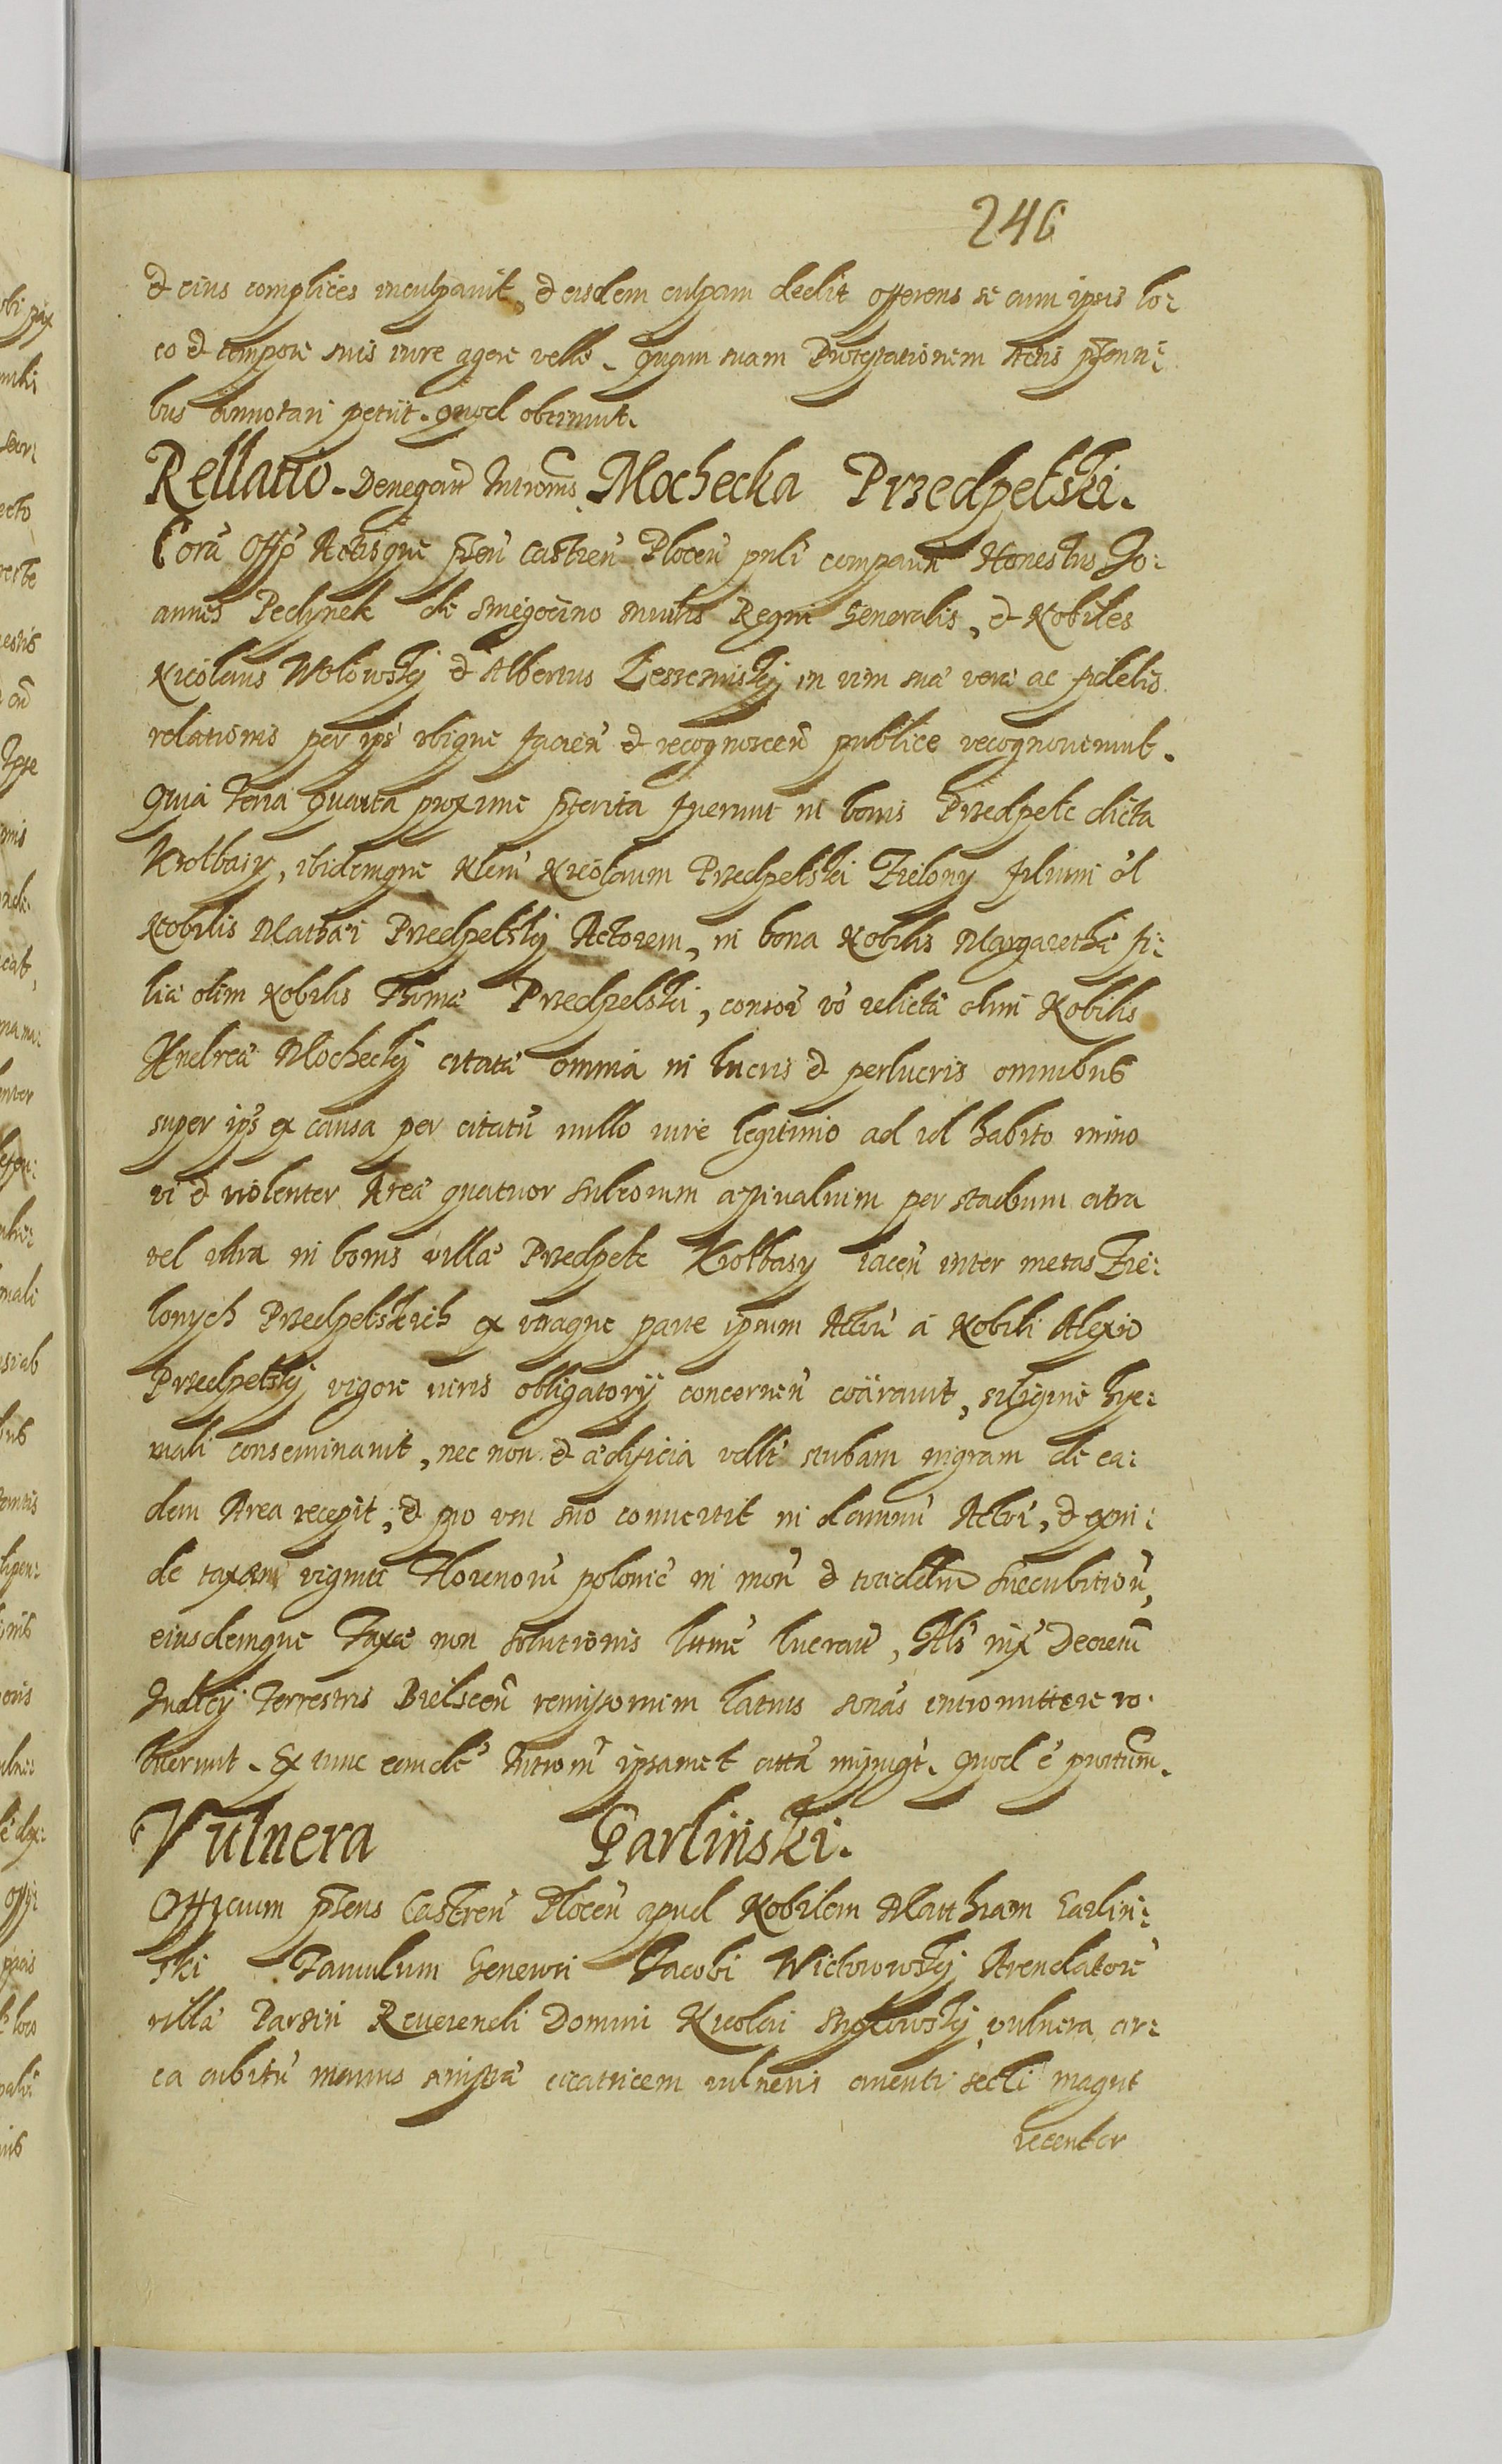 246
et eius complices inculpavit, et eisdem culpam dedit offerens se cum ipsis lo=
co et tempore suis iure agere velle. Quam suam Protestationem Actis pñtni=
bus annotari petiit. quod obtinuit.
Rellatio. Denegat Intromis. Mochecka Przedpelski.
Corã Offõ Actisque pñtn Castren Plocen psnli comparn Honestus Jo=
annes Pedynek de Smigocino ministr Regni Generalis, et Nobiles
Nicolaus Wolowsky et Albertus in vim suæ veræ ac fidelis
relationis per ips ibique facien et recognoscen publice recognoverunt.
Quia feria quarta proxime pterita fuerunt in bonis Przedpełe dicta
Krotbasy, ibidemque Nlem Nicolaum Przedpelski Zielony filium ol
Nobilis Matthæi Przedpelsky Actorem, in bona Nobilis Margarethæ fi=
liæ olim Nobilis Thomæ Przedpelski, consor vo relictæ olim Nobilis
Andreæ Mochecky citatæ omnia in lucris et perlucris omnibus
super ips ex causa per citatũ nullo iure legitimo ad id habito immo
vi et violenter Areæ quatuor sulcorum per stadium citra
vel ultra in bonis villæ Przedpełe Krotbasy iacen inter metas Zie=
lonych Przedpelskich ex utraque parte ipsum Actorẽ a Nobili Alexio
Przedpelsky vigore iuris obligatorij concernen coäravit, siligine hye=
mali conseminavit, nec non et ædificia stubam nigram de ea=
dem Area recepit, et pro usu suo convertit in damnũ Actorẽ, et exni=
de taxam viginti Florenorũ polonic in mon et Succubition,
eiusdemque Taxæ non solutionis lucratæ, Als nix Decretũ
Judicij Terrestris Bielscen latius sonãs intromittere vo=
luerunt. Ex tunc eandẽ Intromis ipsamet cittã. quod ẽ
Vulnera Garlinski.
Officium pñtens Castren Plocen apud Nobilem Matthiam Garlin=
ski Famulum Generosi Jacobi Arendatore
villæ Parzin Reverendi Domini Nicolai vulnera cir=
ca cubitũ manus sinistræ cicatricem vulneris cruenti secti
recenter